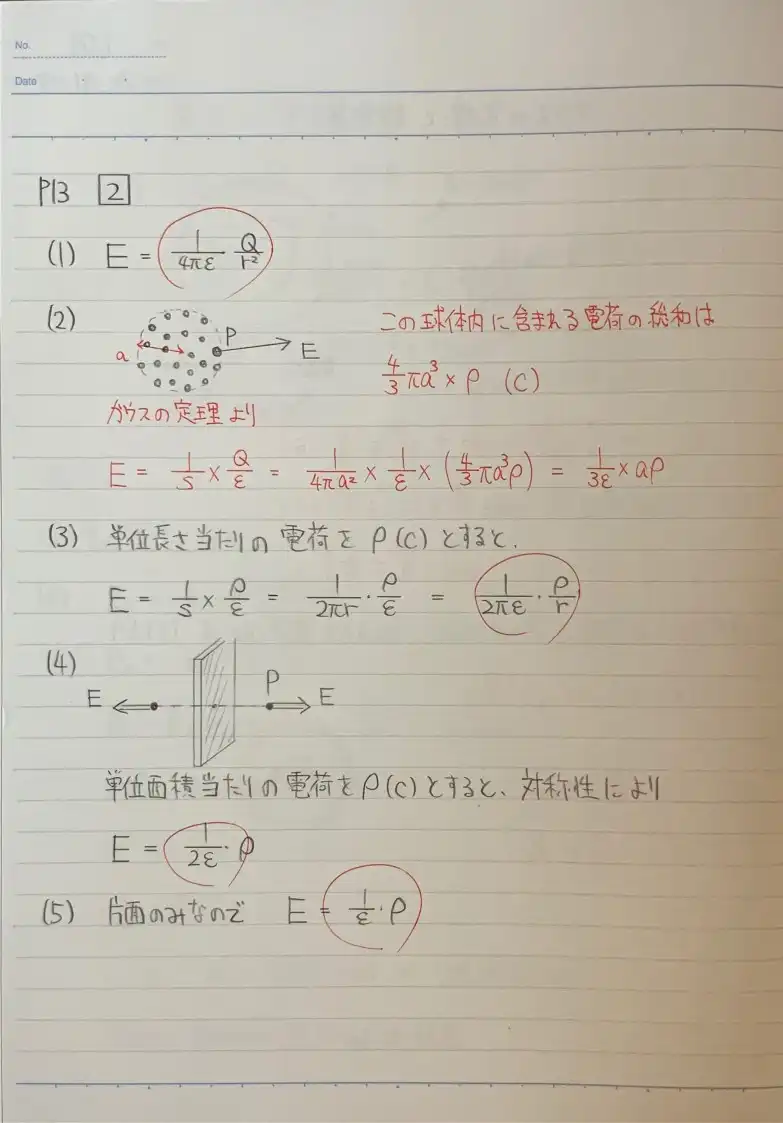 No.
Date
P13 2
(1) E = 1/4πε · Q/r²
(2) P E a
この球体内に含まれる電荷の総和は
4/3 πa³ × ρ (C)
ガウスの定理より
E = 1/S × Q/ε = 1/4πa² × 1/ε × (4/3 πa³ρ) = 1/3ε × aρ
(3) 単位長さ当たりの電荷を ρ(C) とすると.
E = 1/S × ρ/ε = 1/2πr · ρ/ε = 1/2πε · ρ/r
(4)
E P E
単位面積当たりの電荷をρ(C)とすると、対称性により
E = 1/2ε · ρ
(5) 片面のみなので E = 1/ε · ρ